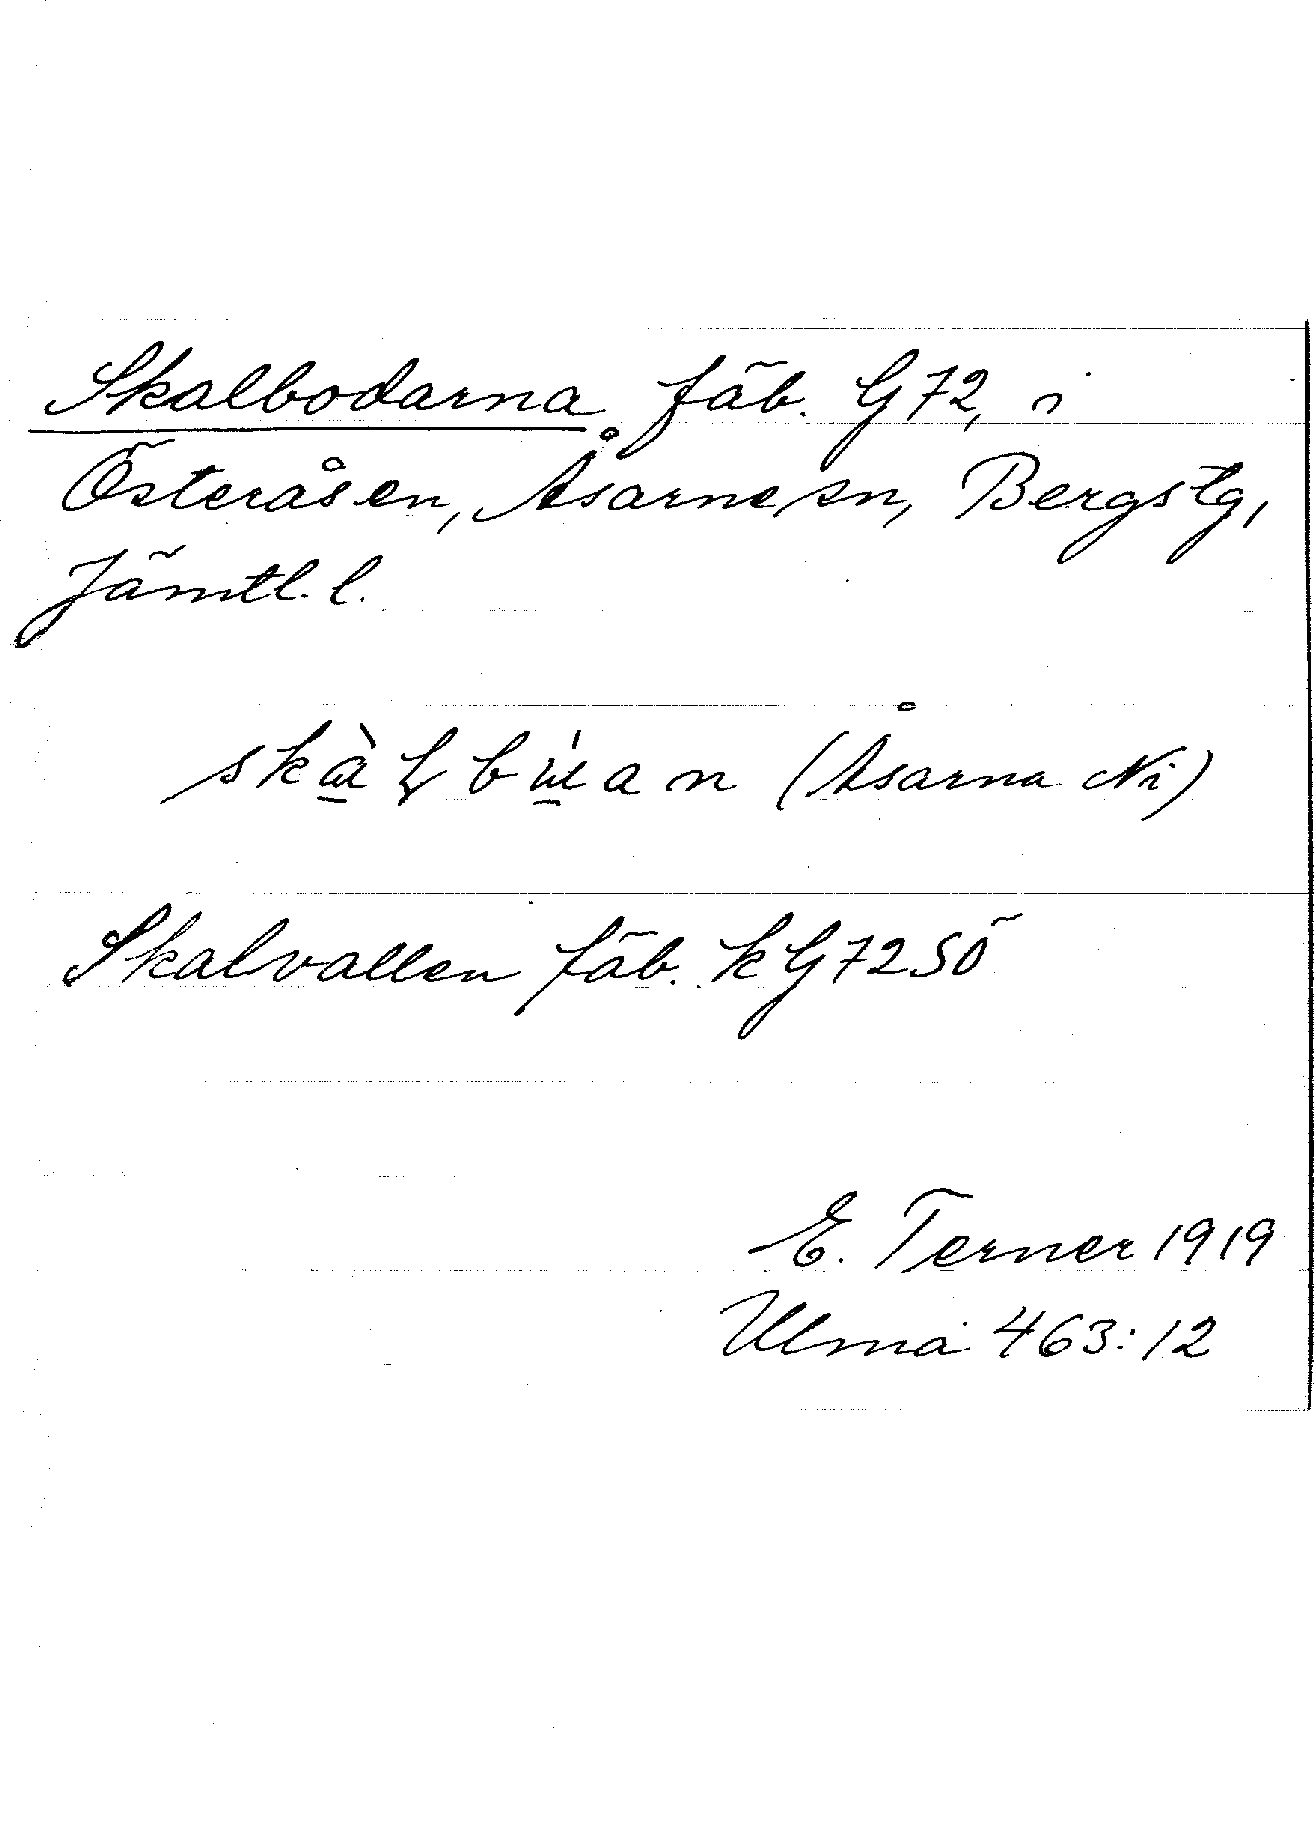 Skalbodarna fäb. G72, i
Österåsen, Åsarne sn, Bergs tg,
Jämtl. l.
(Åsarna Ni)
Skalvallen fäb. k G72SÖ
E. Terner 1919
Ulma 463:12